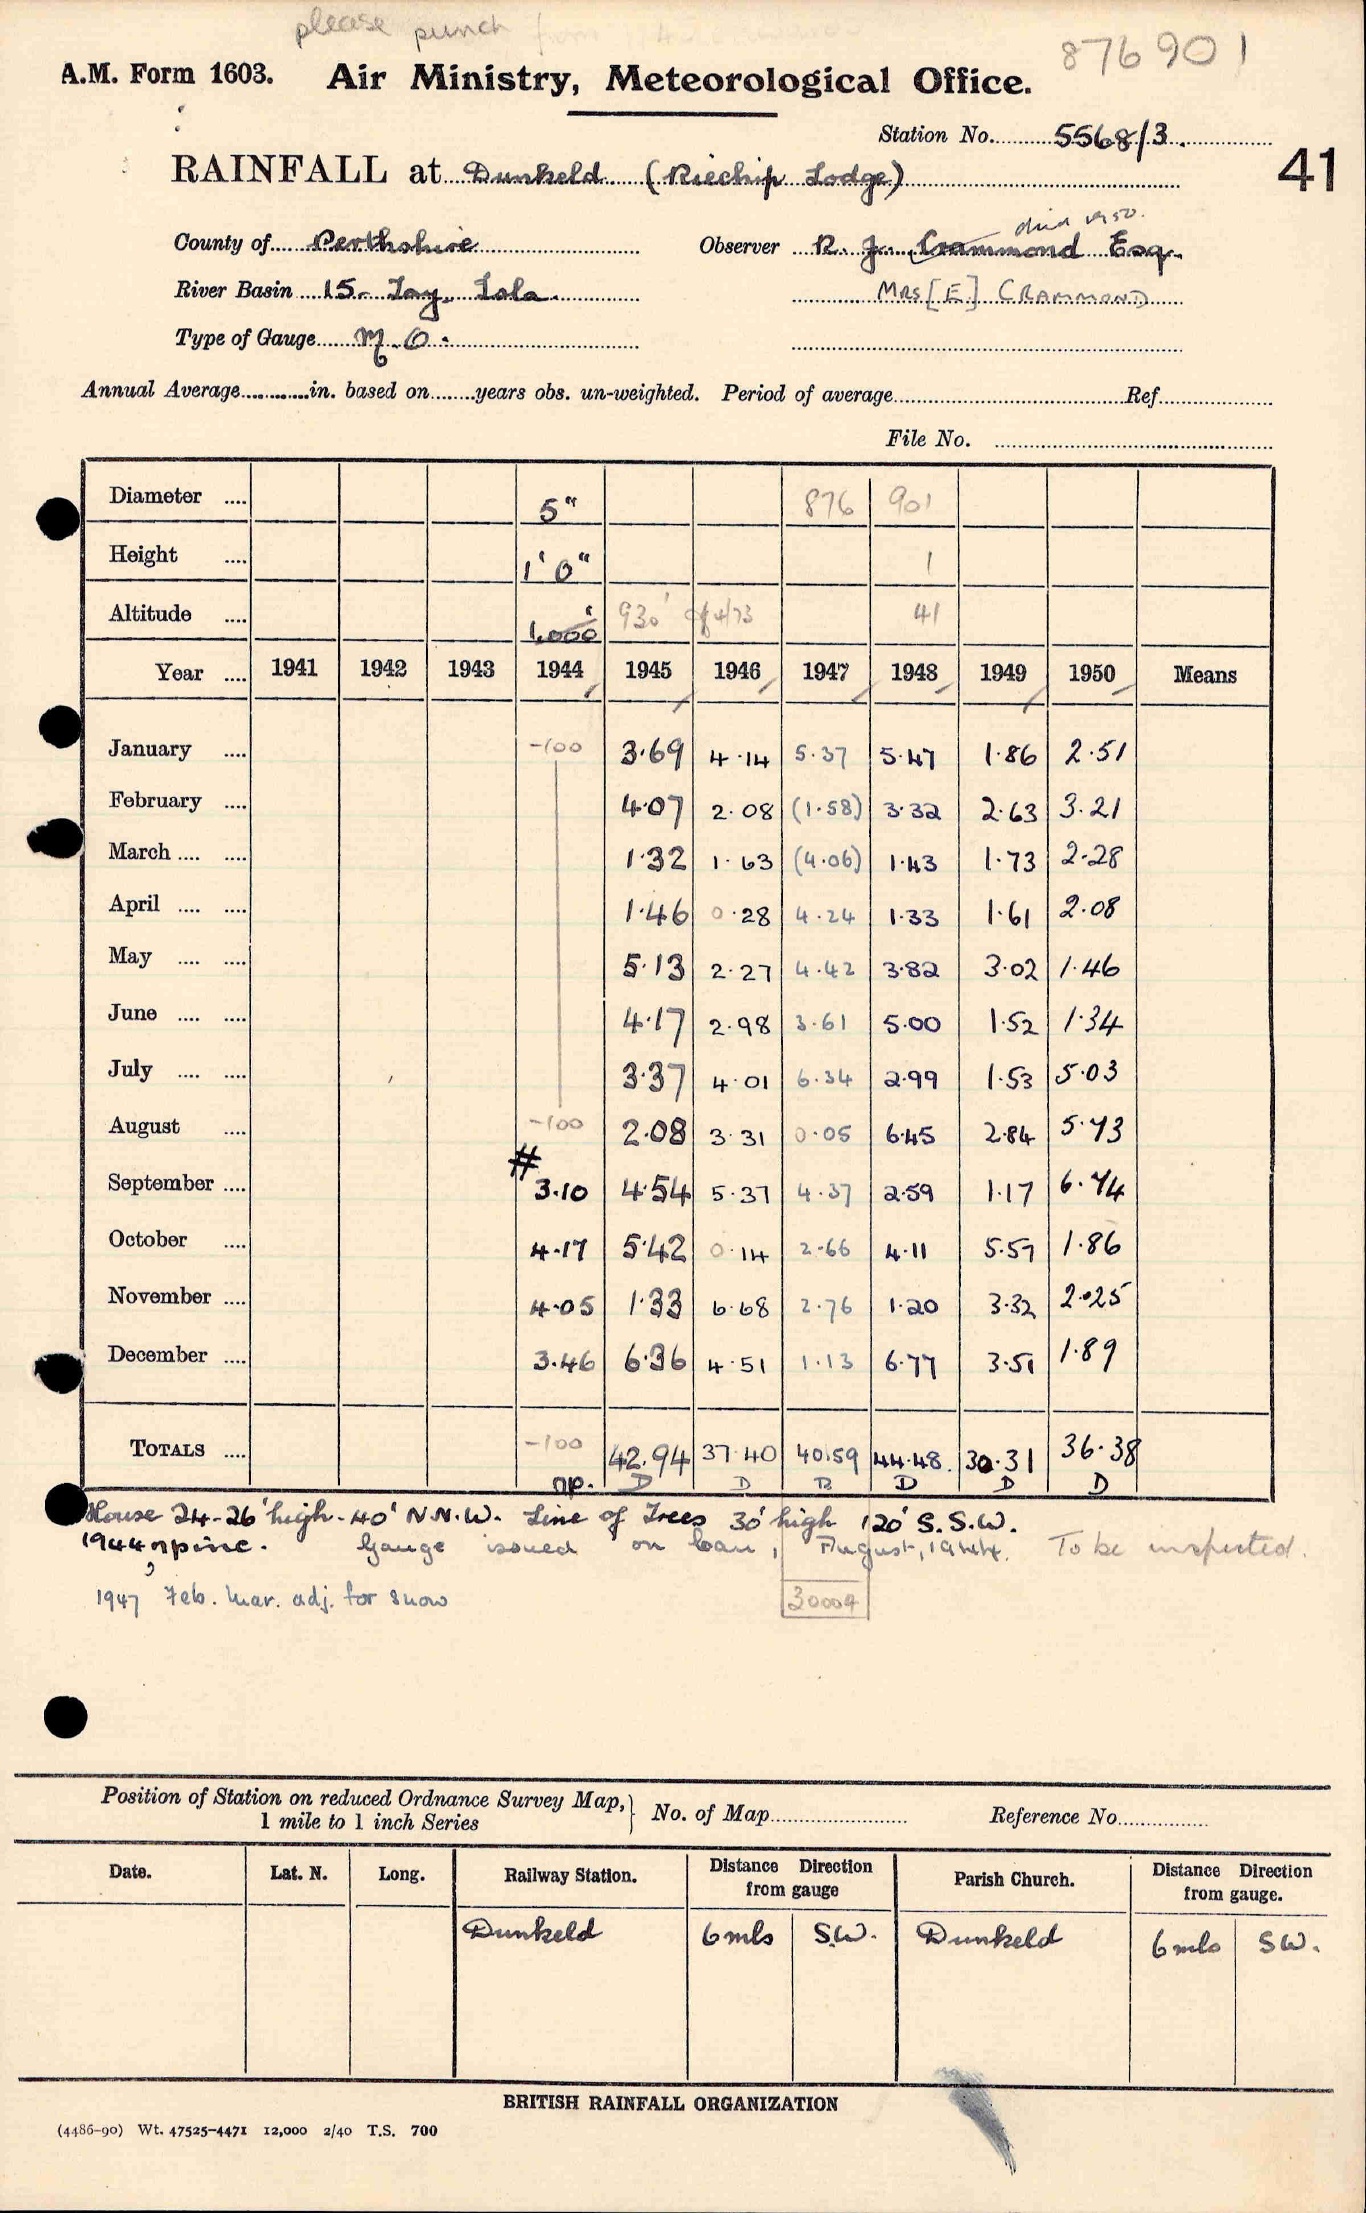 please punch
876901
A.M. Form 1603. Air Ministry, Meteorological Office.
Station No. 5568/3.
41
RAINFALL at Dunkeld (Riechip Lodge)
died 1950.
County of Perthshire Observer R. J. Crammond Esq.
River Basin 15 - Tay. Isla. MRS [E] CRAMMOND
Type of Gauge M.O.
Annual Average............in. based on........years obs. un-weighted. Period of average............Ref............
File No. ............
Diameter .... 5" 876 901
Height .... 1' 0" 1
Altitude .... 1,000' 930' 4/73 41
Year .... 1941 1942 1943 1944 1945 1946 1947 1948 1949 1950 Means
January .... -100 3.69 4.14 5.37 5.47 1.86 2.51
February .... 4.07 2.08 (1.58) 3.32 2.63 3.21
March .... .... 1.32 1.63 (4.06) 1.43 1.73 2.28
April .... .... 1.46 0.28 4.24 1.33 1.61 2.08
May .... .... 5.13 2.27 4.42 3.82 3.02 1.46
June .... .... 4.17 2.98 3.61 5.00 1.52 1.34
July .... .... 3.37 4.01 6.34 2.99 1.53 5.03
August .... -100 2.08 3.31 0.05 6.45 2.84 5.73
September .... # 3.10 4.54 5.37 4.37 2.59 1.17 6.74
October .... 4.17 5.42 0.14 2.66 4.11 5.57 1.86
November .... 4.05 1.33 6.68 2.76 1.20 3.32 2.25
December .... 3.46 6.36 4.51 1.13 6.77 3.51 1.89
TOTALS .... -100 42.94 37.40 40.59 44.48. 30.31 36.38
np. D D B D D D
House 24-26' high - 40' N.N.W. Line of Trees 30' high 120' S.S.W.
1944, npinc. Gauge issued on loan, August, 1944. To be inspected.
1947 Feb. Mar. adj. for snow
30004
Position of Station on reduced Ordnance Survey Map, 1 mile to 1 inch Series } No. of Map............ Reference No............
Date. Lat. N. Long. Railway Station. Distance Direction from gauge Parish Church. Distance Direction from gauge.
Dunkeld 6 mls S.W. Dunkeld 6 mls SW.
BRITISH RAINFALL ORGANIZATION
(4486-90) Wt. 47525-4471 12,000 2/40 T.S. 700